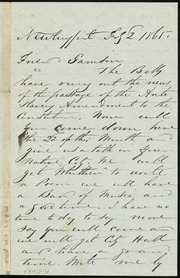 Newburyport Feby 2 1865.
Friend Samson
The Bells
have rung out the news
of the passage of the Anti
Slavery Amendment to the
Constitution. Now will
you come down here
the 22d of this Month and
give us a talk in Our
Native City. We will
get Whittier to write
a Poem we will have
a Band of Music and
a good time. I have no
time today to say more
Say you will come and
we will get City Hall
and have a grand
time. Write me by